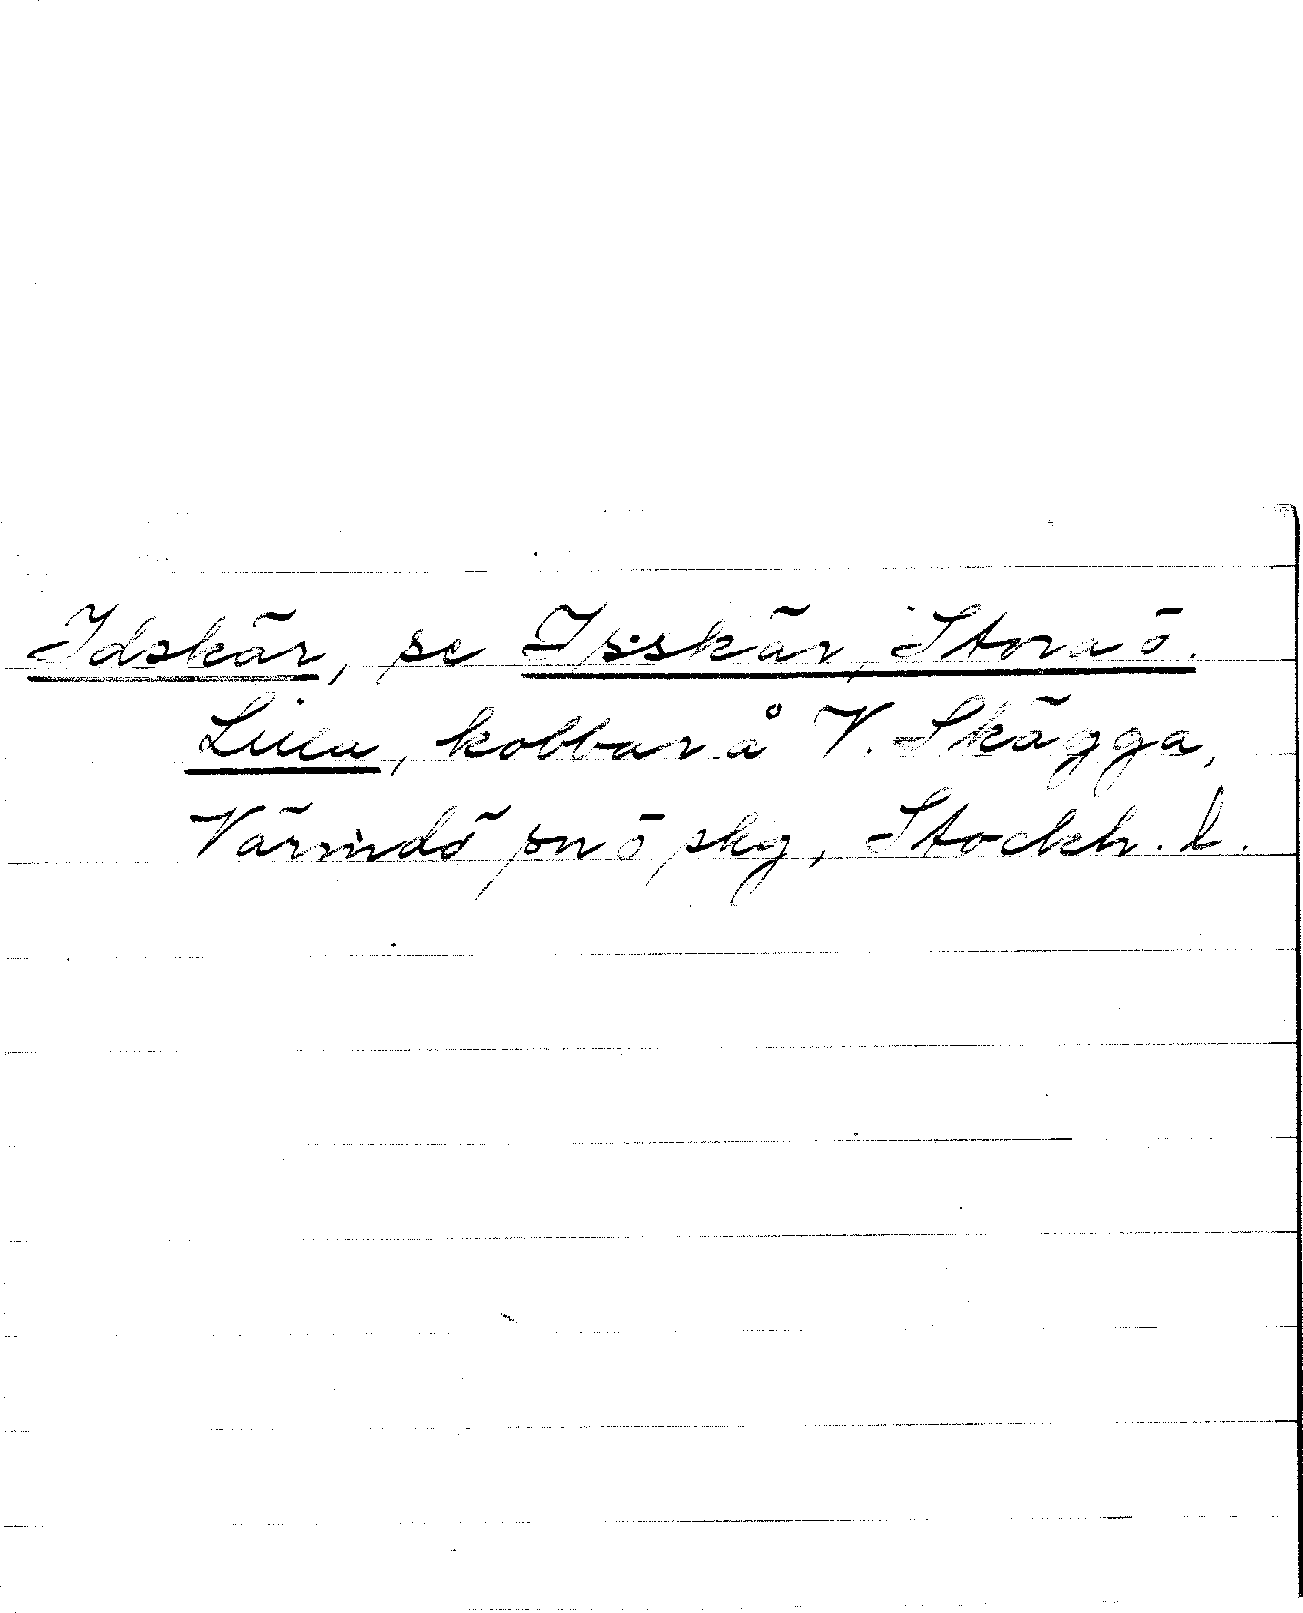 Idskär, se Isskär, Stora o.
Lilla, kobbar å V. Skägga,
Värmdö sn o skg, Stockh. l.